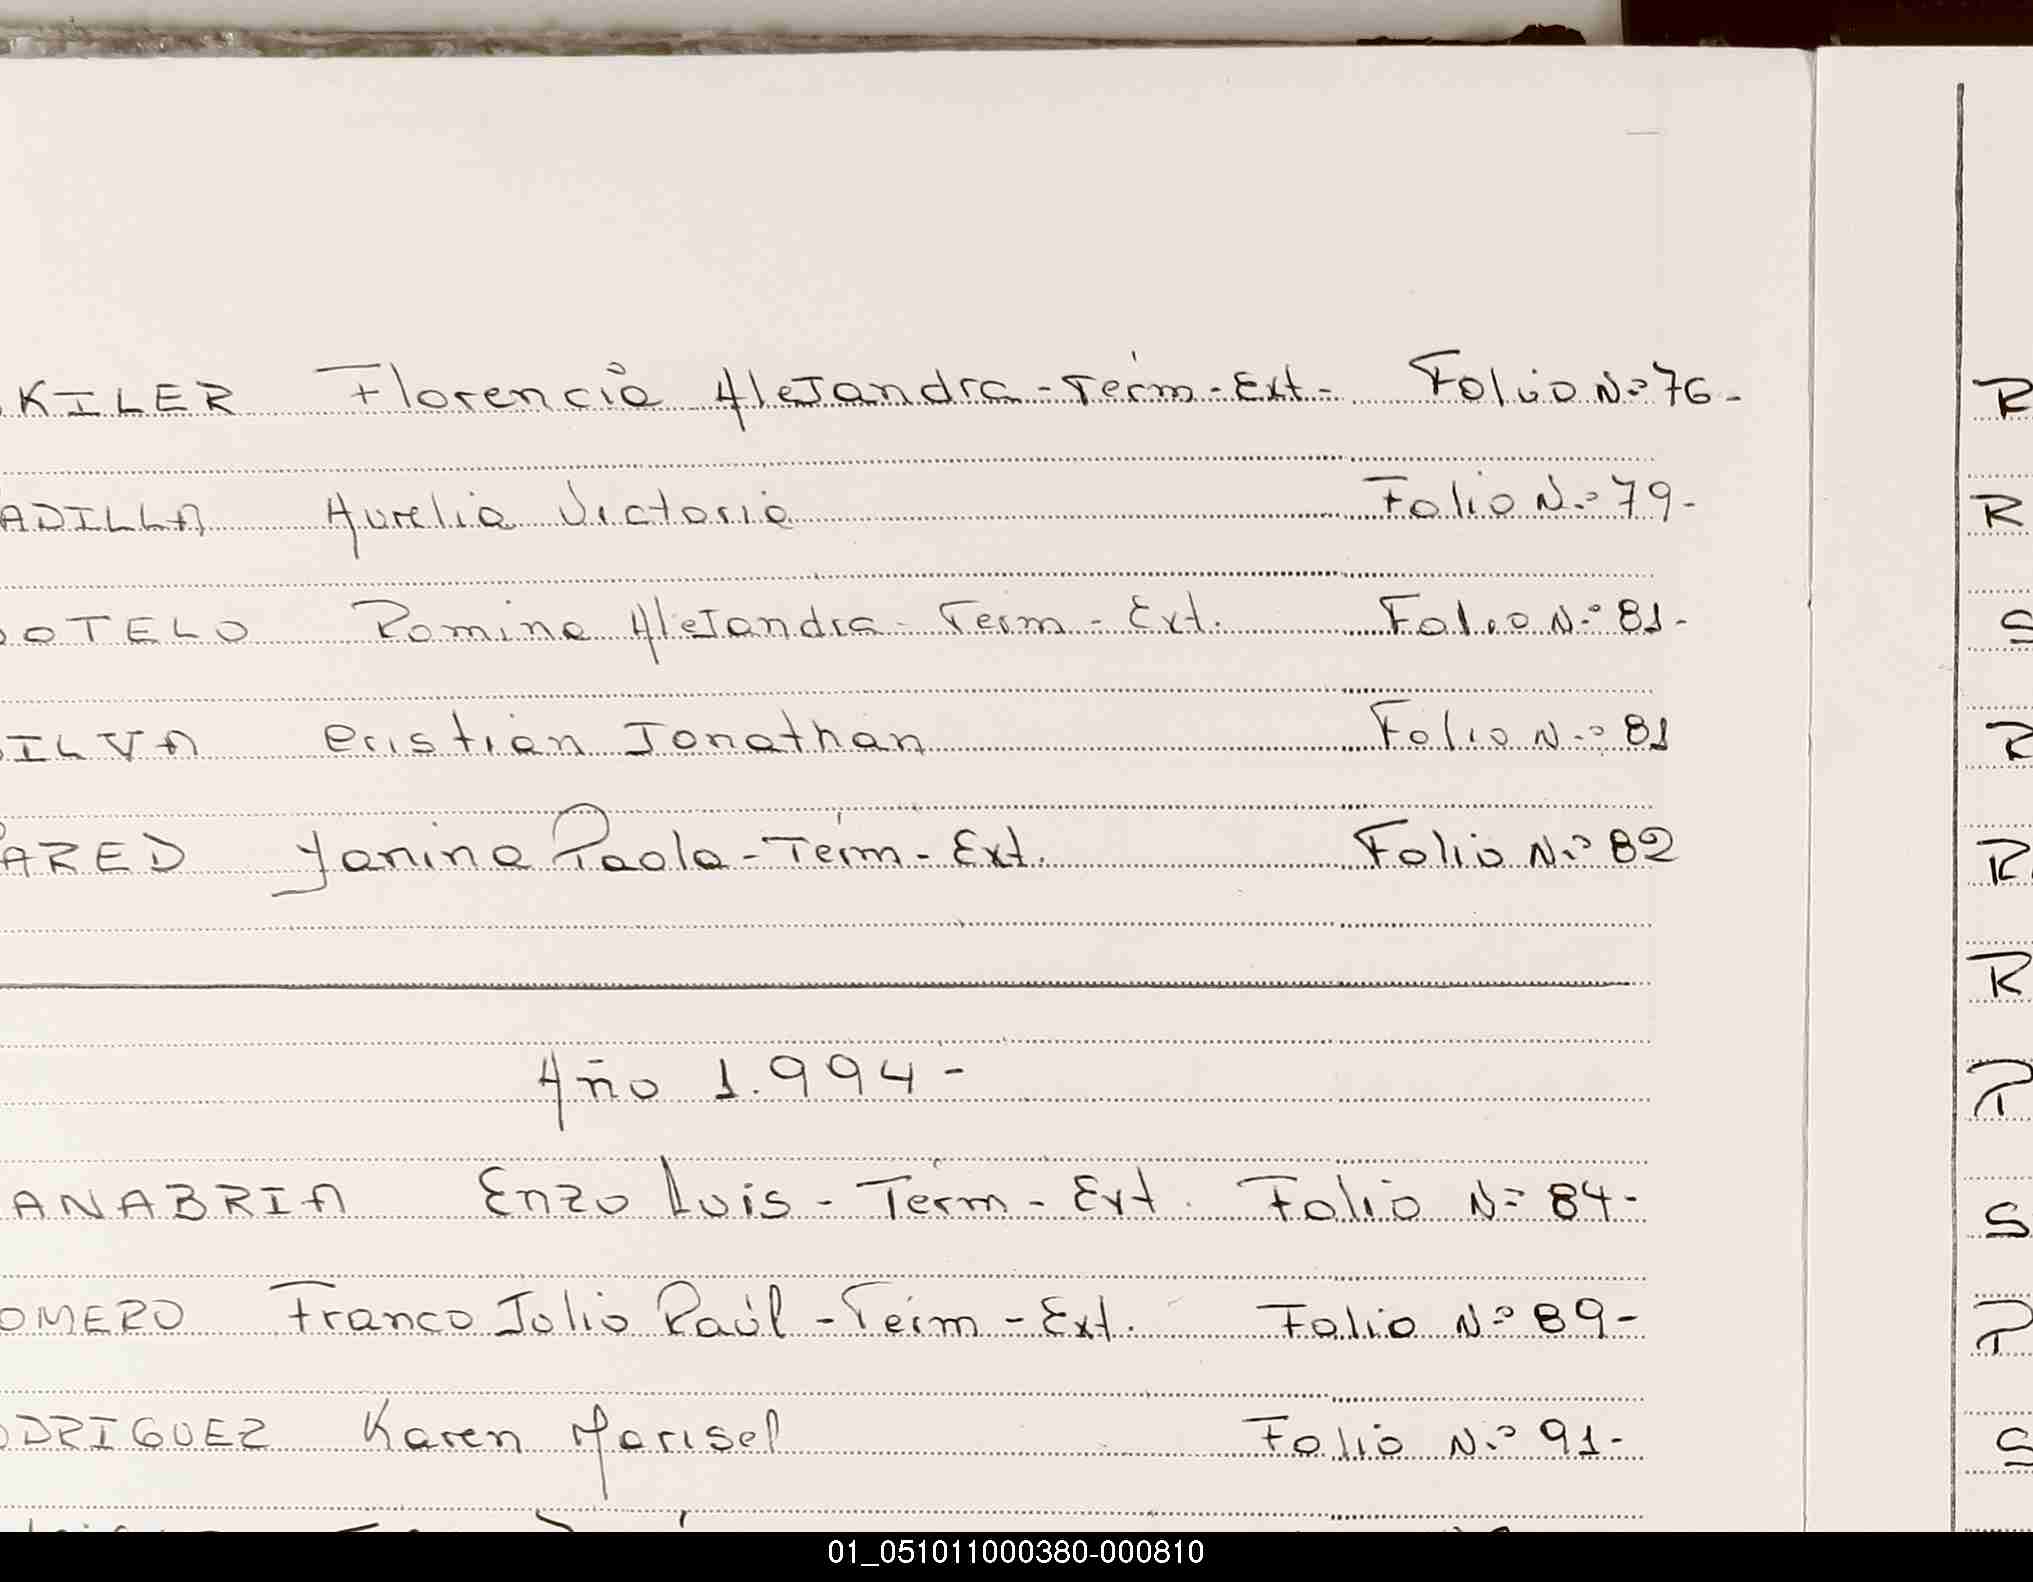 KILER Florencia Alejandra - Térm - Ext - Folio Nº 76 -
ADILLA Aurelia Victoria Folio Nº 79 -
OTELO Romina Alejandra - Term - Ext. Folio Nº 81 -
ILVA Cristian Jonathan Folio Nº 81
ARED Yanina Paola - Térm - Ext. Folio Nº 82
Año 1.994 -
ANABRIA Enzo Luis - Term - Ext. Folio Nº 84 -
OMERO Franco Julio Raúl - Term - Ext. Folio Nº 89 -
ODRIGUEZ Karen Marisel Folio Nº 91 -
R
R
S
R
R
R
R
S
R
S
01_051011000380-000810